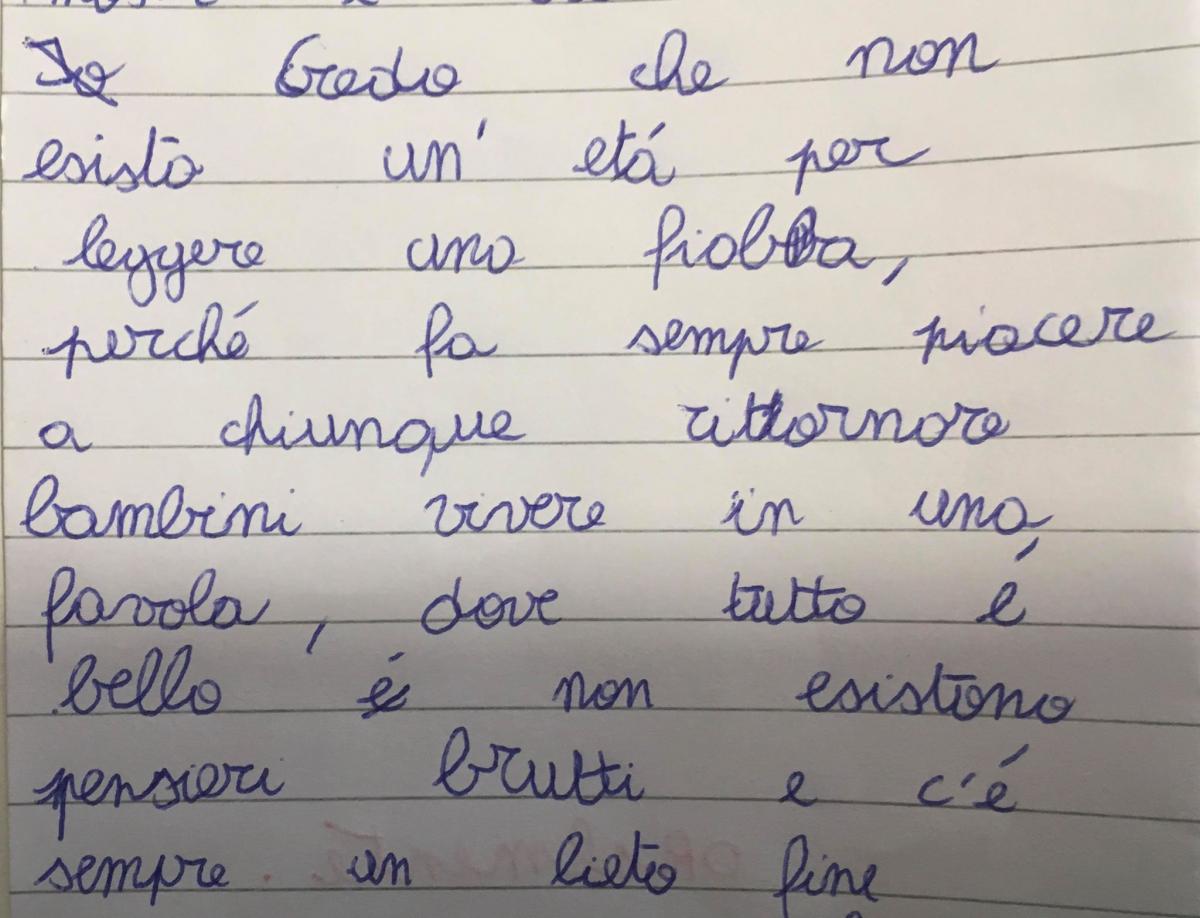 Io Credo che non
esista un' etá per
leggere una fiaba,
perché fa sempre piacere
a chiunque rittornare
bambini vivere in una
favola, dove tutto é
bello é non esistono
pensieri brutti e c'é
sempre un lieto fine